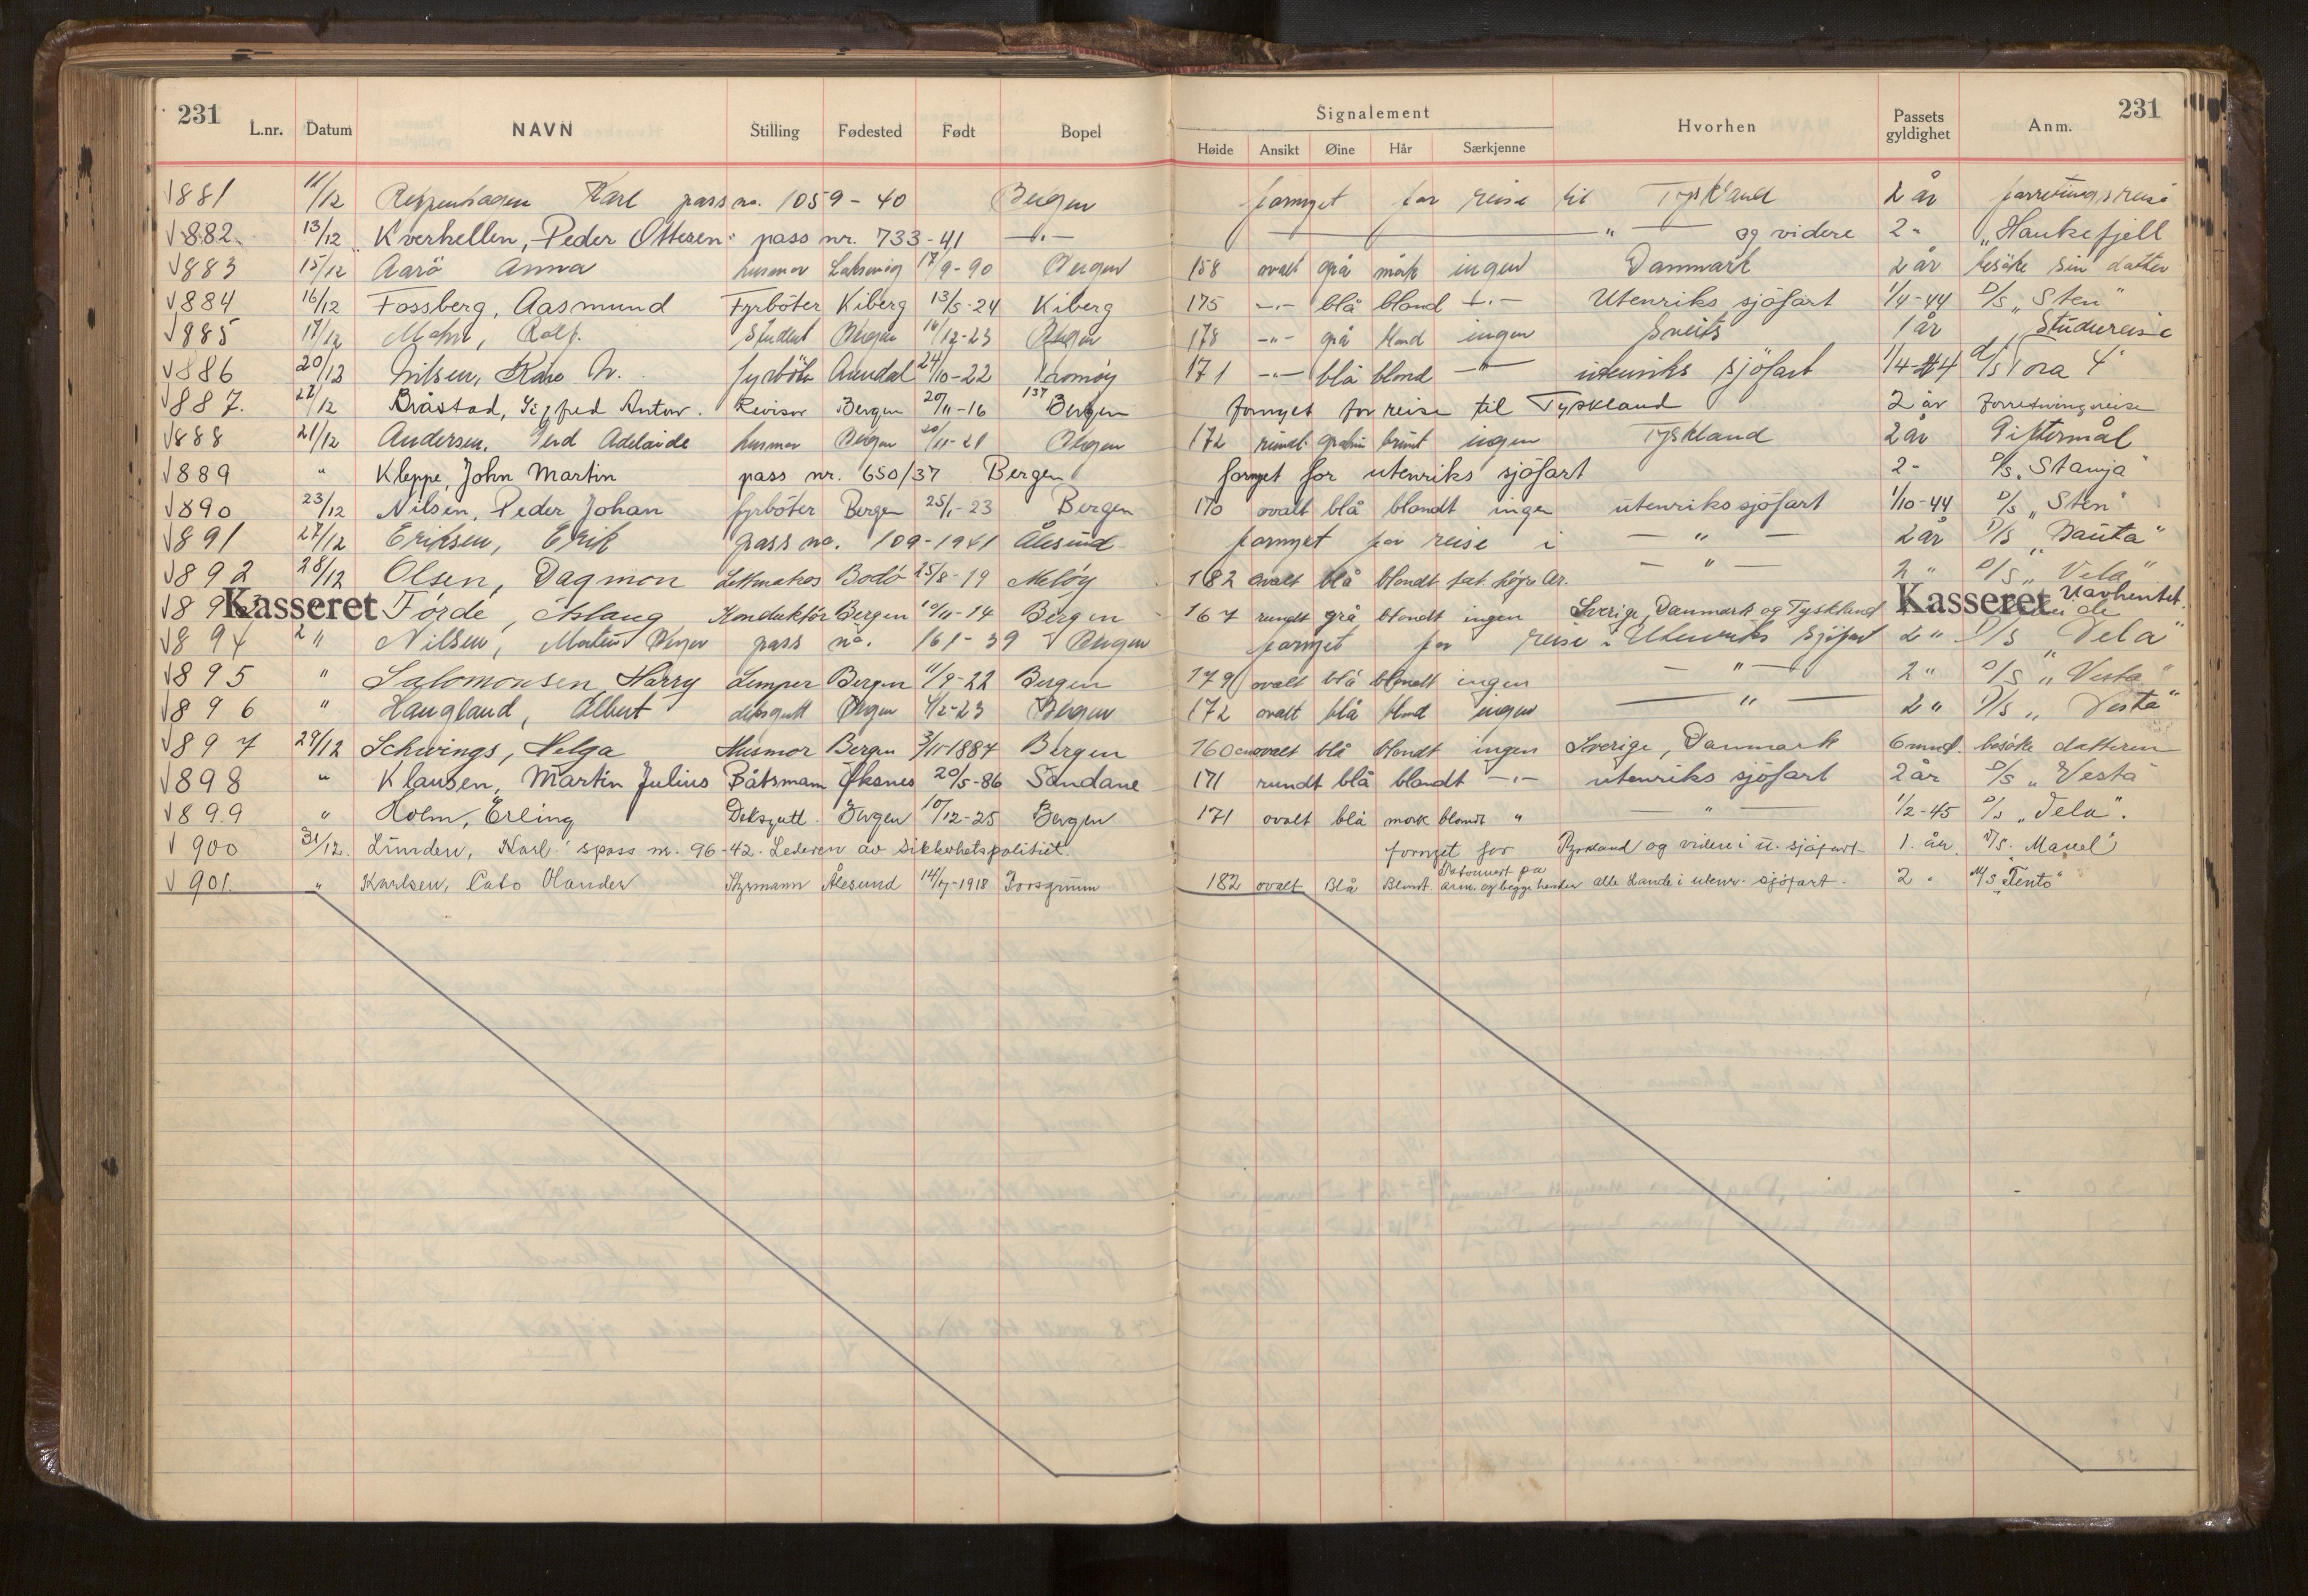 231 L.nr. Datum NAVN Stilling Fødested Født Bopel Signalement Hvorhen Passets gyldighet Anm. 231
Høide Ansikt Øine Hår Særkjenne
V 881 11/12 Karl pass no. 1059-40 Bergen fornyet for reise til Tyskland 2 år forretningsreise
V 882 13/12 Kverhellen, Peder Ottesen pass nr. 733-41 —„— — „ — og videre 2 „ „Haukefjell
V 883 15/12 Aarö Anna husmor Laksevåg 17/9-90 Bergen 158 ovalt grå mörk ingen Danmark 2 år besöke sin datter
V 884 16/12 Fossberg, Aasmund Fyrböter Kiberg 13/5-24 Kiberg 175 —„— blå blond —„— Utenriks sjöfart 1/4-44 D/S „Sten"
V 885 17/12 Rolf. Student Bergen 16/12-23 Bergen 178 —„— grå blond ingen Sveits 1 år Studiereise
V 886 20/12 Nilsen, Kåre N. fyrböter Arendal 24/10-22 Tromöy 171 —„— blå blond —„— utenriks sjöfart 1/4-44 D/S Tora
V 887. 21/12 Bråstad, Sigfred Anton. Revisor Bergen 20/11-16 137 Bergen fornyet for reise til Tyskland 2 år Forretningsreise
V 888 21/12 Andersen, Gerd Adelaide husmor Bergen 20/11-21 Bergen 172 rundt brunt ingen Tyskland 2 år Giftermål
V 889 „ Kleppe, John Martin pass nr. 650/37 Bergen fornyet for utenriks sjöfart 2 „ D/S „Stanja"
V 890 23/12 Nilsen, Peder Johan fyrböter Bergen 25/1-23 Bergen 170 ovalt blå blondt ingen utenriks sjöfart 1/10-44 D/S „Sten"
V 891 27/12 Eriksen, Erik pass no. 109-1941 Ålesund fornyet for reise i — „ — 2 år D/S „Bauta"
V 892 28/12 Olsen, Dagmon Lettmatros Bodö 25/8-19 Melöy 182 ovalt blå blondt tat. höyr. Ar. — „ — 2 „ D/S „Vela"
V 893 Kasseret Förde, Aslaug Konduktör Bergen 10/11-14 Bergen 167 rundt grå blondt ingen Sverige, Danmark og Tyskland Kasseret Uavhentet.
V 894 2 „ Nilsen, Martin Birger pass no. 161-39 Bergen fornyet for reise i Utenriks sjöfart 2 „ D/S „Vela"
V 895 „ Salomonsen, Harry Lemper Bergen 11/9-22 Bergen 179 ovalt blå blondt ingen — „ — 2 „ D/S „Vesta"
V 896 „ Haugland, Albert dekksgutt Bergen 4/2-23 Bergen 172 ovalt blå blond ingen — „ — 2 „ D/S „Vesta"
V 897 29/12 Schwings, Helga Husmor Bergen 3/11-1884 Bergen 160 cm ovalt blå blondt ingen Sverige, Danmark 6 mnd. besöke datteren
V 898 „ Klausen, Martin Julius Båtsmann Öksnes 20/5-86 Sandane 171 rundt blå blondt —„— utenriks sjöfart 2 år D/S „Vesta"
V 899 „ Holm, Erling Deksgutt. Bergen 10/12-25 Bergen 171 ovalt blå mörk blondt „ — „ — 1/2-45 D/S „Vela".
V 900 31/12. Linden, Karl. spass nr. 96-42. Lederen av Sikkerhetspolitiet. fornyet for Tyskland og videre i u. sjöfart 1. år.
V 901. „ Karlsen, Cato Olander Styrmann Ålesund 14/7-1918 Porsgrunn 182 ovalt Blå Blondt. Tatoveret på arm. og begge hender alle Lande i utenr. sjöfart. 2 „ M/S „Tento"